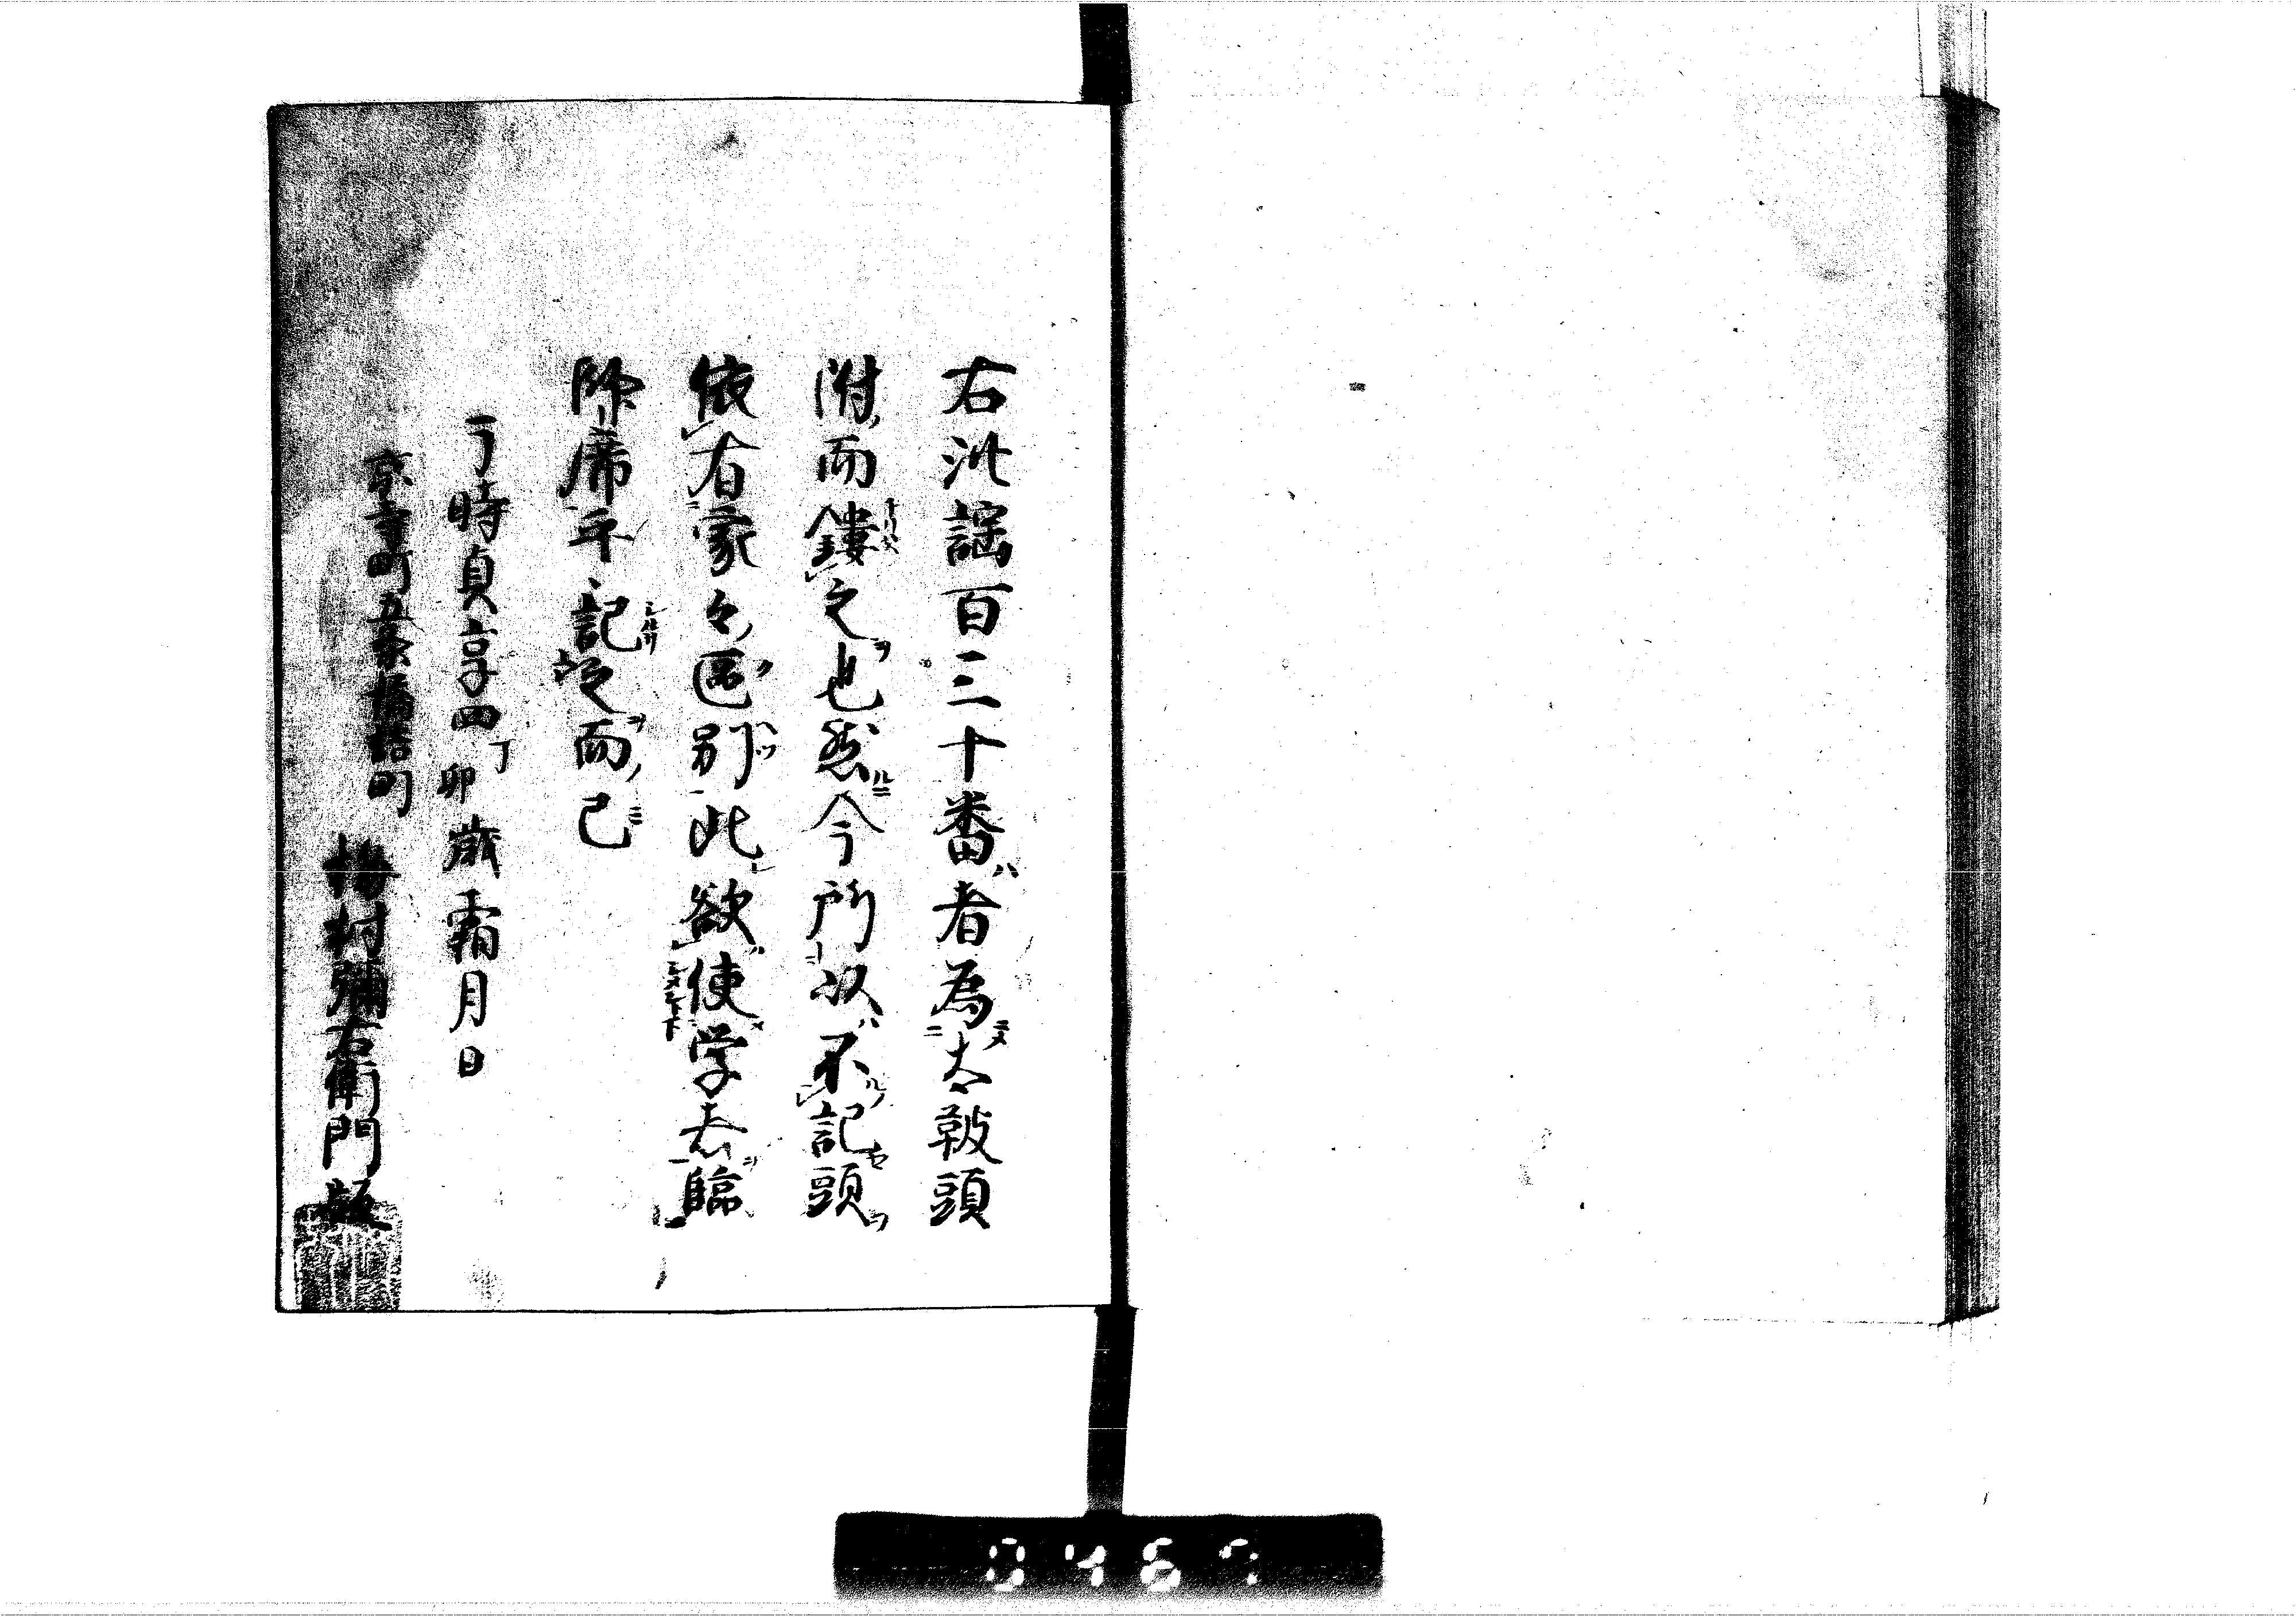 右此謡百三十番者為太鼓頭
附而鏤之也然今所以不記頭
依有家々區別此欲使学者臨
師席 記之而已
于時貞享四丁卯歳霜月日
京寺町五条橋詰町
梅村彌右衛門板